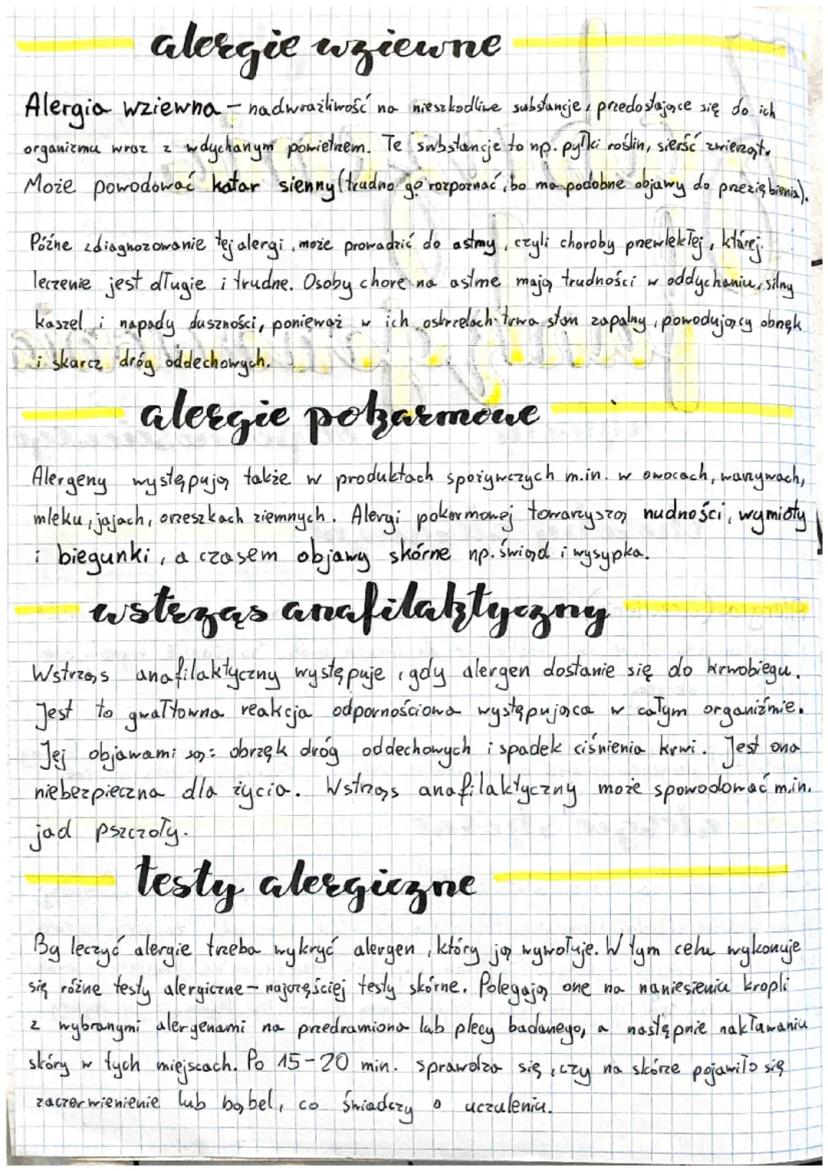 alergie wziewne
Alergia wziewna – nadwrażliwość na nieszkodliwe substancje, przedostające się do ich
organizmu wraz z wdychanym powietrzem. Te substancje to np. pyłki roślin, sierść zwierząt.
Może powodować katar sienny (trudno go rozpoznać, bo ma podobne objawy do przeziębienia).
Późne zdiagnozowanie tej alergi, może prowadzić do astmy, czyli choroby przewlekłej, której
leczenie jest długie i trudne. Osoby chore na astme mają trudności w oddychaniu, silny
kaszel i napady duszności, ponieważ w ich oskrzelach trwa stan zapalny, powodujący obrzęk
i skurcz dróg oddechowych.
alergie pokarmowe
Alergeny występują także w produktach spożywczych m.in. w owocach, warzywach,
mleku, jajach, orzeszkach ziemnych. Alergi pokarmowej towarzyszą nudności, wymioty
i biegunki, a czasem objawy skórne np. świąd i wysypka.
wstrząs anafilaktyczny
Wstrząs anafilaktyczny występuje, gdy alergen dostanie się do krwobiegu.
Jest to gwałtowna reakcja odpornościowa występująca w całym organiźmie.
Jej objawami są: obrzęk dróg oddechowych i spadek ciśnienia krwi. Jest ona
niebezpieczna dla życia. Wstrząs anafilaktyczny może spowodować m.in.
jad pszczoły.
testy alergiczne
By leczyć alergie trzeba wykryć alergen, który ją wywołuje. W tym celu wykonuje
się różne testy alergiczne – najczęściej testy skórne. Polegają one na naniesieniu kropli
z wybranymi alergenami na przedramiona lub plecy badanego, a następnie nakłuwaniu
skóry w tych miejscach. Po 15-20 min. sprawdza się, czy na skórze pojawiło się
zaczerwienienie lub bąbel, co świadczy o uczuleniu.